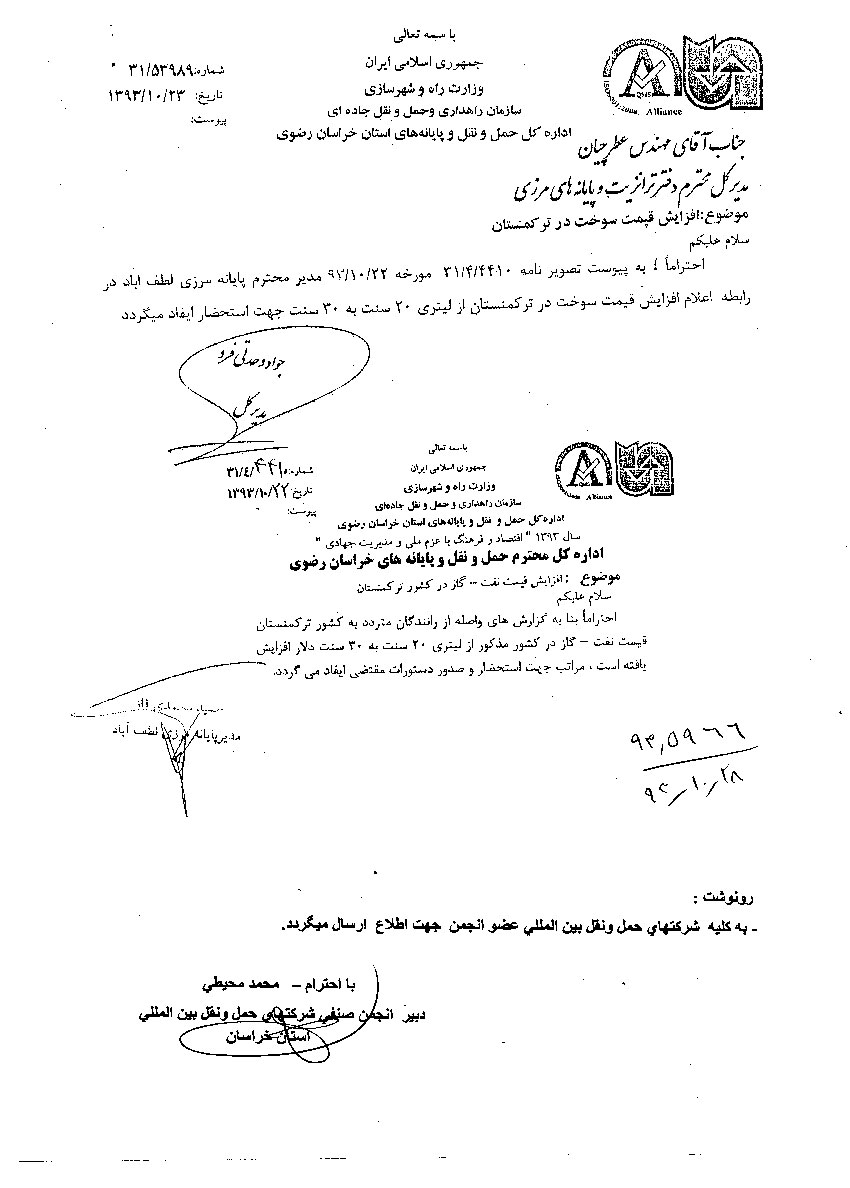 با سمه تعالی
جمهوری اسلامی ایران
وزارت راه و شهرسازی
سازمان راهداری وحمل و نقل جاده ای
اداره کل حمل و نقل و پایانه‌های استان خراسان رضوی
شماره: ۳۱/۵۳۹۸۹
تاریخ: ۱۳۹۳/۱۰/۲۳
پیوست:
QMS
Alliance
جناب آقای مهندس عطرچیان
مدیرکل محترم دفتر ترانزیت و پایانه های مرزی
موضوع:افزایش قیمت سوخت در ترکمنستان
سلام علیکم
احتراماً ؛ به پیوست تصویر نامه ۳۱/۴/۴۴۱۰ مورخه ۹۳/۱۰/۲۲ مدیر محترم پایانه مرزی لطف آباد در
رابطه اعلام افزایش قیمت سوخت در ترکمنستان از لیتری ۲۰ سنت به ۳۰ سنت جهت استحضار ایفاد میگردد
جواد وحدتی فرد
مدیرکل
باسمه تعالی
جمهوری اسلامی ایران
وزارت راه و شهرسازی
سازمان راهداری و حمل و نقل جاده‌ای
اداره‌کل حمل و نقل و پایانه‌های استان خراسان رضوی
شماره: ۳۱/٤/۴۴۱۰
تاریخ: ۱۳۹۳/۱۰/۲۲
پیوست:
Alliance
سال ۱۳۹۳ " اقتصاد و فرهنگ با عزم ملی و مدیریت جهادی "
اداره کل محترم حمل و نقل و پایانه های خراسان رضوی
موضوع : افزایش قیمت نفت – گاز در کشور ترکمنستان
سلام علیکم
احتراماً بنا به گزارش های واصله از رانندگان متردد به کشور ترکمنستان
قیمت نفت – گاز در کشور مذکور از لیتری ۲۰ سنت به ۳۰ سنت دلار افزایش
یافته است ، مراتب جهت استحضار و صدور دستورات مقتضی ایفاد می گردد.
مدیرپایانه مرزی لطف آباد
۹۳٫۵۹۶۶
۹۳/۱۰/۲۸
رونوشت :
- به کلیه شرکتهاي حمل ونقل بین المللي عضو انجمن جهت اطلاع ارسال میگردد.
با احترام – محمد محیطي
دبیر انجمن صنفي شرکتهاي حمل ونقل بین المللي
استان خراسان